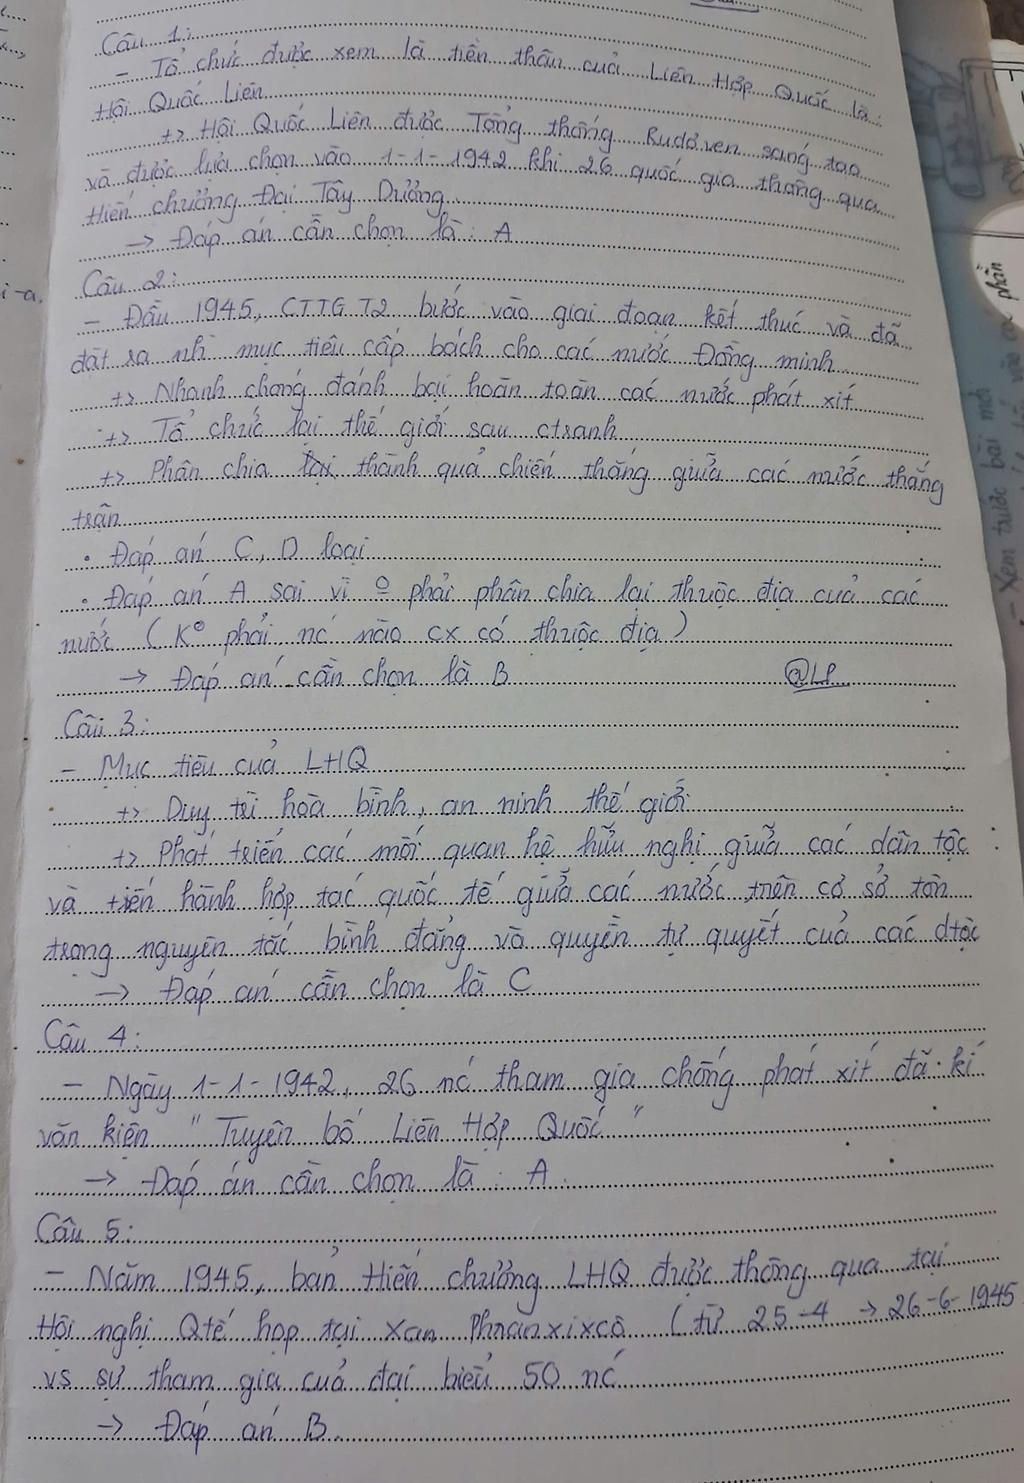 Câu 1:
- Tổ chức được xem là tiền thân của Liên Hợp Quốc là:
Hội Quốc Liên
+> Hội Quốc Liên được Tổng thống Rudơven sáng tạo
và được lựa chọn vào 1-1-1942 khi 26 quốc gia thông qua
Hiến chương Đại Tây Dương.
→ Đáp án cần chọn là: A
Câu 2:
- Đầu 1945, CTTG T2 bước vào giai đoạn kết thúc và đã
đặt ra nh̃ mục tiêu cấp bách cho các nước Đồng minh.
+> Nhanh chóng đánh bại hoàn toàn các nước phát xít
+> Tổ chức lại thế giới sau ctranh
+> Phân chia thành quả chiến thắng giữa các nước thắng
trận
• Đáp án C, D loại
• Đáp án A sai vì o phải phân chia lại thuộc địa của các
nước (Ko phải nc nào cx có thuộc địa)
→ Đáp án cần chọn là B
@LP
Câu 3:
- Mục tiêu của LHQ
+> Duy trì hòa bình, an ninh thế giới
+> Phát triển các mối quan hệ hữu nghị giữa các dân tộc
và tiến hành hợp tác quốc tế giữa các nước trên cơ sở tôn
trọng nguyên tắc bình đẳng và quyền tự quyết của các dtộc
→ Đáp án cần chọn là C
Câu 4:
- Ngày 1-1-1942, 26 nc tham gia chống phát xít đã kí
văn kiện "Tuyên bố Liên Hợp Quốc"
→ Đáp án cần chọn là: A.
Câu 5:
- Năm 1945, bản Hiến chương LHQ được thông qua tại
Hội nghị Qtế họp tại Xan Phranxixcô (từ 25-4 → 26-6-1945
vs sự tham gia của đại biểu 50 nc
→ Đáp án B.
- Xem trước bài mới
các phần